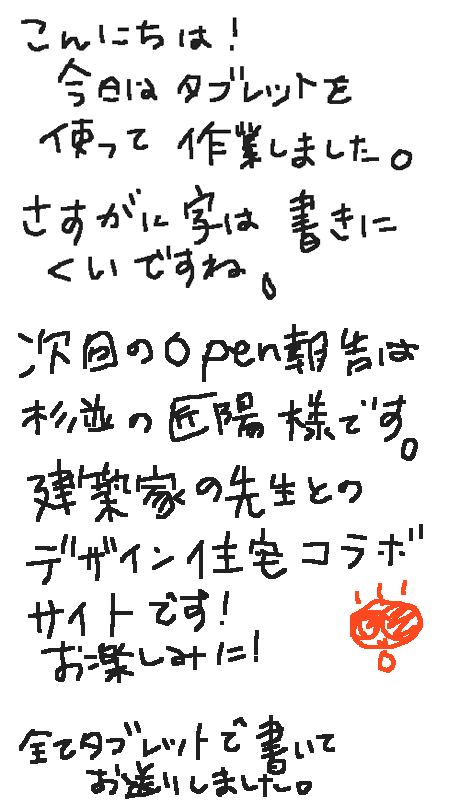 こんにちは!
今日は タブレットを
使って 作業しました。
さすがに字は 書きに
くいですね。
次回のopen報告は
杉並の匠陽様です。
建築家の先生との
デザイン住宅コラボ
サイトです!
お楽しみに!
全てタブレットで書いて
お送りしました。